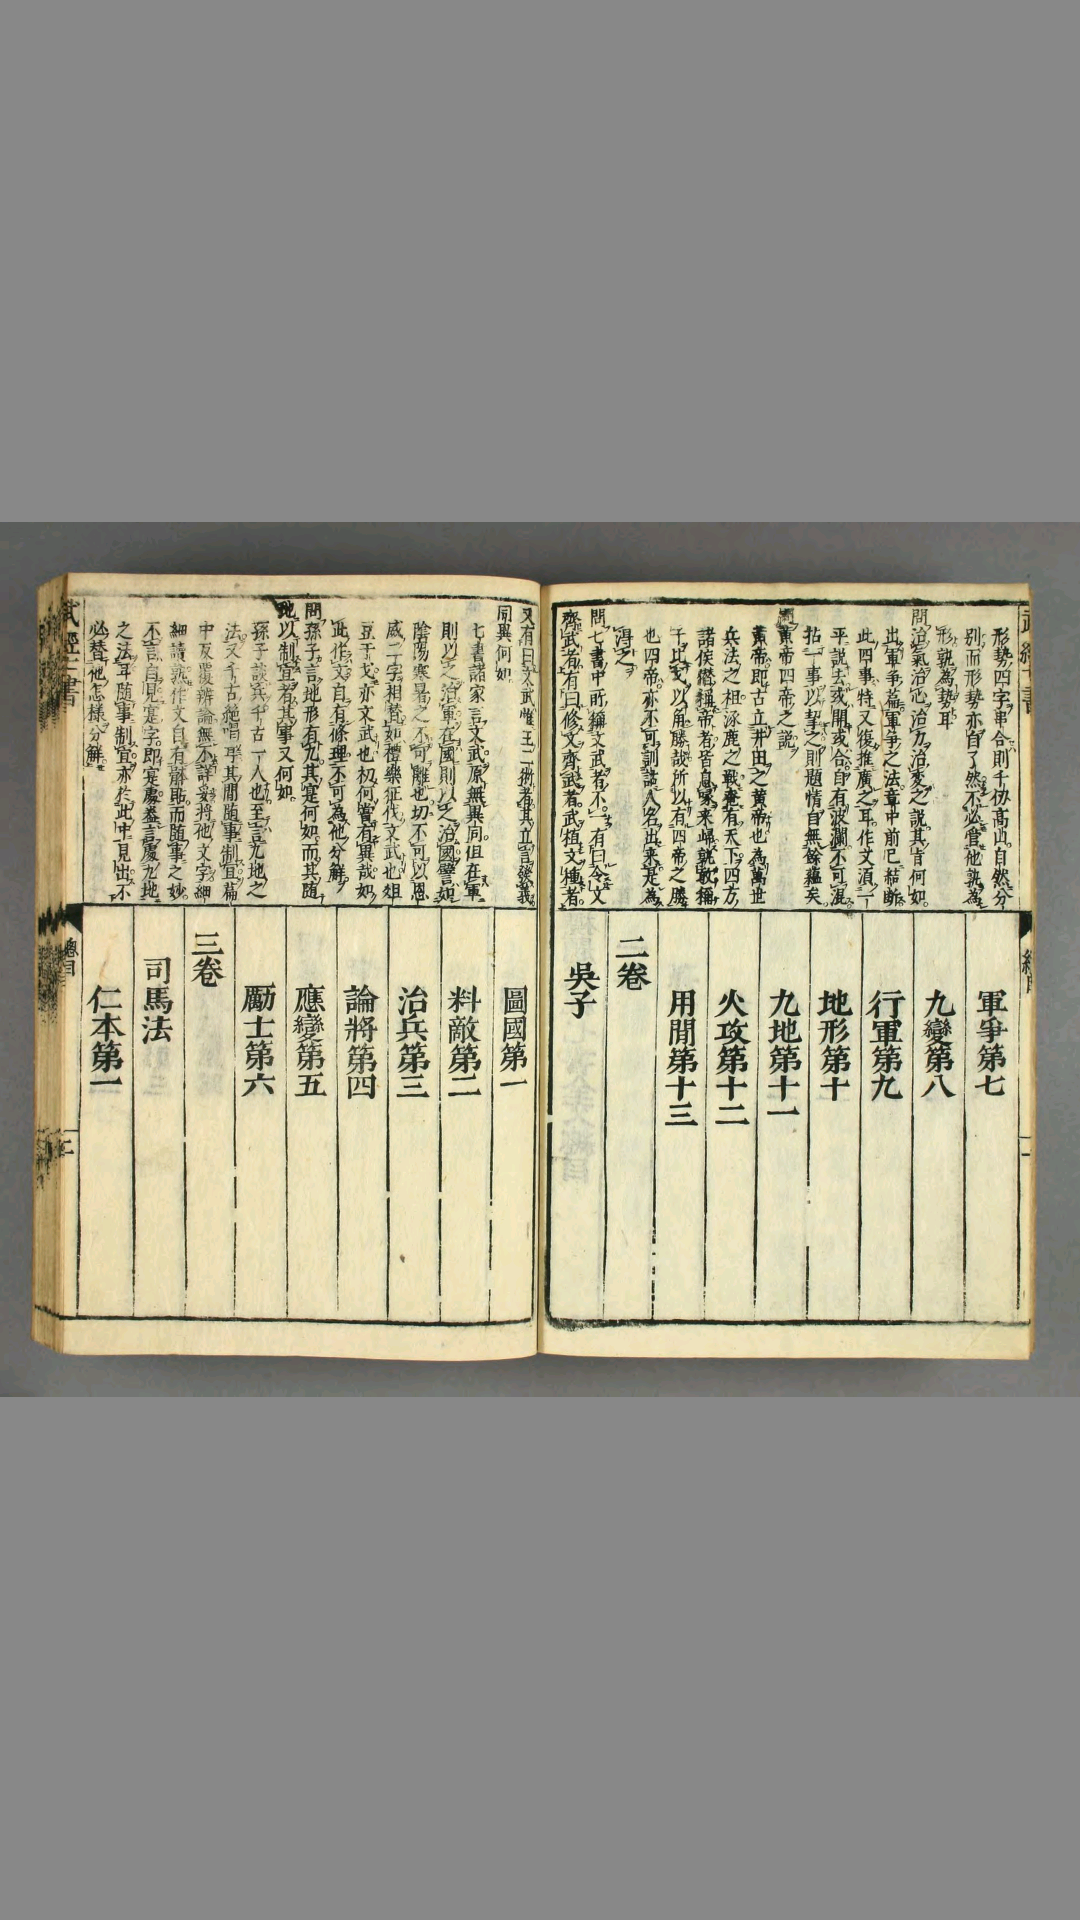 形勢四字串合則千仞髙山自然分
別而形勢亦自了然不必管他孰為
形孰為勢耳
問治氣治心治力治変之説其旨何如
出軍爭篇軍爭之法章中前已結断
此四事特又復推廣之耳作文須二
平説去或開或合自有波瀾不可混
拈一事以挈之則題情自無餘蘊矣
問黄帝四帝之説
黄帝即古立井田之黄帝也為萬世
兵法之祖涿鹿之戰奄有天下四方
諸侯僭稱帝者皆息
干比戈以角勝哉所以有四帝之勝
也四帝亦不可訓諸人名出来是為
淂之
問七書中所稱文武者不一有曰令文
齊武者有曰修文齊武者武植文種者
軍爭第七
九變第八
行軍第九
地形第十
九地第十一
火攻第十二
用間第十三
二卷
吳子
又有曰文武惟王二術者其立言發義
同異何如
七書諸家言文武原無異同但在軍
則以之治軍在國則以之治國譬如
陰陽寒暑之不可離也切不可以恩
威二字相替如禮樂征伐文武也俎
豆干戈亦文武也初何嘗有異哉如
此作文自有條理不可為他分觧
問孫子言地形有九其寔何如而其随
地以制宜者其事又何如
孫子談兵千古一人也至言九地之
法又千古絶唱乎其間随事制宜篇
中反覆辨論無不詳妥將他文字細
細讀熟作文自有
不言自見寔字即寔處葢言處九地
之法耳随事制宜亦於此中見出不
必替他怎様分觧
圖國第一
料敵第二
治兵第三
論將第四
應變第五
勵士第六
三卷
司馬法
仁本第一
武經七書
總目
二